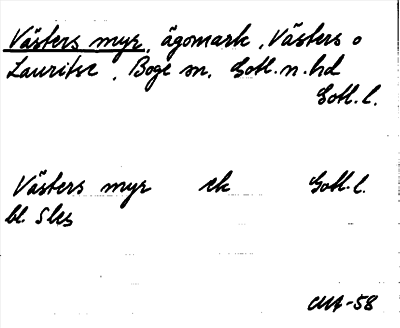 Västers myr, ägomark, Västers o
Lauritse, Boge sn, Gotl. n. hd
Gotl. l.
Västers myr ek Gotl. l.
bl. 5
-58